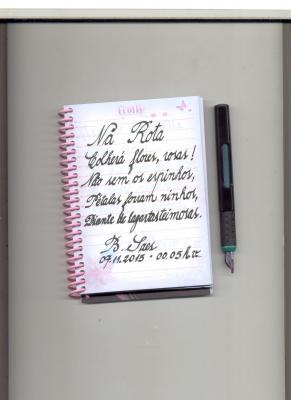 Na Rota
Colherá flores, rosas!
Não sem os espinhos,
Pétalas foram ninhos,
Diante de lagartas teimosas.
B. Saes
07.11.2015 - 00.05h